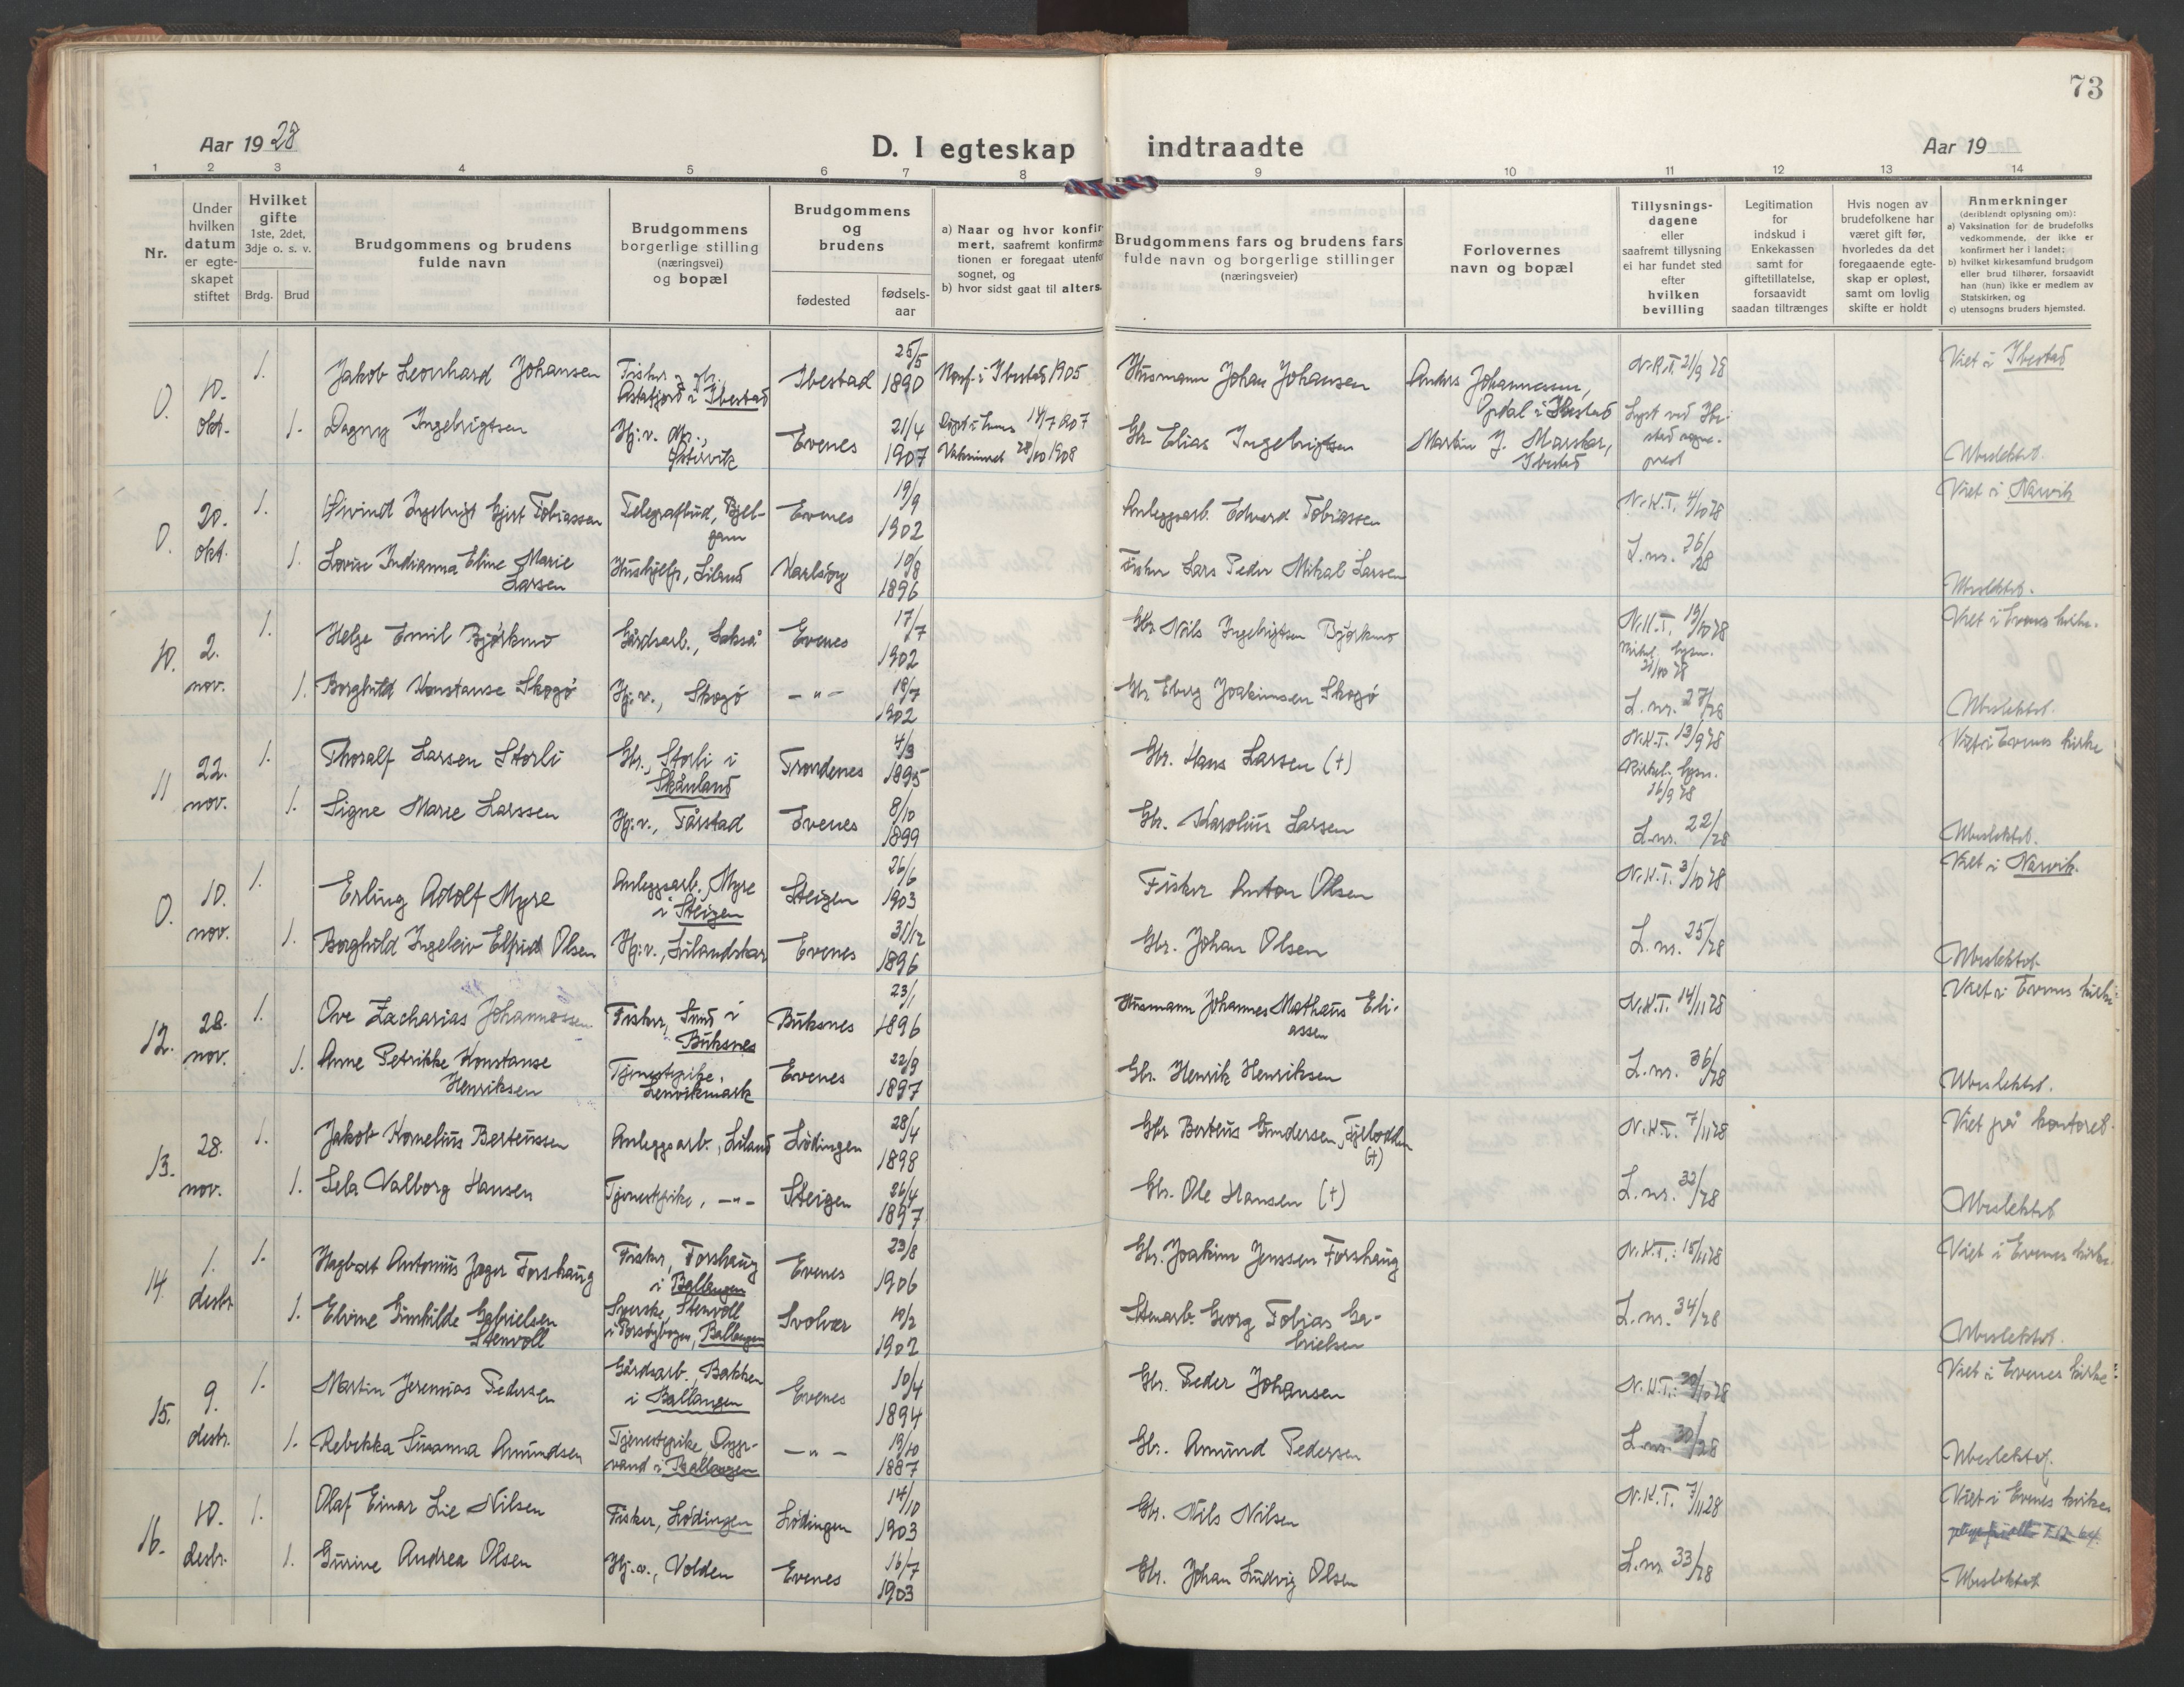 73
Aar 1928
D. I egteskap indtraadte
Aar 19
1 2 3 4 5 6 7 8 9 10 11 12 13 14
Nr.
Under
hvilken
datum
er egte-
skapet
stiftet
Hvilket
gifte
1ste, 2det,
3dje o. s. v.
Brdg. Brud
Brudgommens og brudens
fulde navn
Brudgommens
borgerlige stilling
(næringsvei)
og bopæl
Brudgommens
og
brudens
fødested
fødsels-
aar
a) Naar og hvor konfir-
mert, saafremt konfirma-
tionen er foregaat utenfor
sognet, og
b) hvor sidst gaat til alters.
Brudgommens fars og brudens fars
fulde navn og borgerlige stillinger
(næringsveier)
Forlovernes
navn og bopæl
Tillysnings-
dagene
eller
saafremt tillysning
ei har fundet sted
efter
hvilken
bevilling
Legitimation
for
indskud i
Enkekassen
samt for
giftetillatelse,
forsaavidt
saadan tiltrænges
Hvis nogen av
brudefolkene har
været gift før,
hvorledes da det
foregaaende egte-
skap er opløst,
samt om lovlig
skifte er holdt
Anmerkninger
(deriblandt oplysning om):
a) Vaksination for de brudefolks
vedkommende, der ikke er
konfirmert her i landet;
b) hvilket kirkesamfund brudgom
eller brud tilhører, forsaavidt
han (hun) ikke er medlem av
Statskirken, og
c) utensogns bruders hjemsted.
0. 10. okt. 1. Jakob Leonhard Johansen
Fisker og gbr.
Astafjord i Ibestad
Ibestad 25/5 1890
Konf. i Ibestad 1905
Husmann Johan Johansen
Anders Johannessen,
Opdal i Ibestad
N.K.T. 21/9 28
Viet i Ibestad
1. Dagny Ingebrigtsen
Hj.v. Østervik
Evenes 21/4 1907
Døpt i 14/7 1907
Vaksinert 28/10 1908
Gbr. Elias Ingebrigtsen
Martin J. Ibestad
Lyst ved Ibestad sogneprest
Ubeslektet.
0. 20. okt. 1. Øivind Ingebrigt Gjert Tobiassen
Telegrafbud,
Evenes 19/9 1902
Anleggsarb. Edvard Tobiassen
N.K.T. 4/10 28
Viet i Narvik
1. Lovise Indianna Eline Marie
Larsen
Hushjelp, Liland
Karlsøy 19/8 1896
Fisker Lars Peder Mikal Larsen
L.nr. 26/28
Ubeslektet.
10. 2. nov. 1. Helge Emil Bjørkmo
Gårdsarb., Lakså
Evenes 17/7 1902
Gbr. Nils Ingebrigtsen Bjørkmo
N.K.T. 19/10 28
Kirkel. lysn.
21/10 28
Viet i Evenes kirke.
1. Borghild Konstanse Skogø
Hj.v., Skogø
— " — 19/7 1902
Gbr. Eberg Joakimsen Skogø
L.nr. 27/28
Ubeslektet.
11 22. nov. 1. Thoralf Larsen Storli
Gbr., Storli i
Skånland
Trondenes 4/3 1895
Gbr. Hans Larsen (+)
N.K.T. 13/9 28
Kirkel. lysn.
16/9 28
Viet i Evenes kirke
1. Signe Marie Larssen
Hj.v., Tårstad
Evenes 8/10 1899
Gbr. Karolius Larsen
L.nr. 22/28
Ubeslektet.
0. 10. nov. 1. Erling Adolf Myre
Anleggsarb., Myre
i Steigen
Steigen 26/6 1903
Fisker Anton Olsen
N.K.T. 3/10 28
Viet i Narvik.
1. Borghild Ingeleiv Elfrid Olsen
Hj.v., Lilandskar
Evenes 31/12 1896
Gbr. Johan Olsen
L.nr. 25/28
Ubeslektet.
12. 28. nov. 1. Ove Zacharias Johannessen
Fisker, Sund i
Buksnes
Buksnes 23/1 1896
Husmann Johannes Mathæus Eli-
assen
N.K.T. 14/11 28
Viet i Evenes kirke.
1. Anne Petrikke Konstanse
Henriksen
Tjenestepike,
Lenvikmark
Evenes 22/9 1897
Gbr. Henrik Henriksen
L.nr. 36/28
Ubeslektet.
13. 28. nov. 1. Jakob Kornelius Berteussen
Anleggsarb., Liland
Lödingen 28/4 1898
Gbr. Berteus Gundersen,
(+)
N.K.T. 7/11 28
Viet på kontoret.
1. Lela Valborg Hansen
Tjenestepike, — " —
Steigen 26/4 1897
Gbr. Ole Hansen (+)
L.nr. 32/28
Ubeslektet
14. 1. desbr. 1. Hagbart Antonius Jager Forshaug
Fisker, Forshaug
i Ballangen
Evenes 23/8 1906
Gbr. Joakim Jenssen Forshaug
N.K.T.: 15/11 28
Viet i Evenes kirke.
1. Elvine Gunhilde Gabrielsen
Stenvoll
Syerske, Stenvoll
Ballangen
Svolvær 10/2 1902
Stenarb. Georg Tobias Ga-
brielsen
L.nr. 34/28
Ubeslektet.
15. 9. desbr. 1. Martin Jeremias Pedersen
Gårdsarb., Bakken
i Ballangen
Evenes 10/4 1894
Gbr. Peder Johansen
N.K.T.: 30/10 28
Viet i Evenes kirke
1. Rebekka Susanna Amundsen
Tjenestepike, Dypr-
vand i Ballangen
— " — 19/10 1887
Gbr. Amund Pedersen
L.nr. 30/28
Ubeslektet.
16. 10. desbr. 1. Olaf Einar Lie Nilsen
Fisker, Lödingen
Lödingen 14/10 1903
Gbr. Nils Nilsen
N.K.T. 7/11 28
Viet i Evenes kirke
1. Gurine Andrea Olsen
Hj.v., Volden
Evenes 16/7 1903
Gbr. Johan Ludvig Olsen
L.nr. 33/28
Ubeslektet